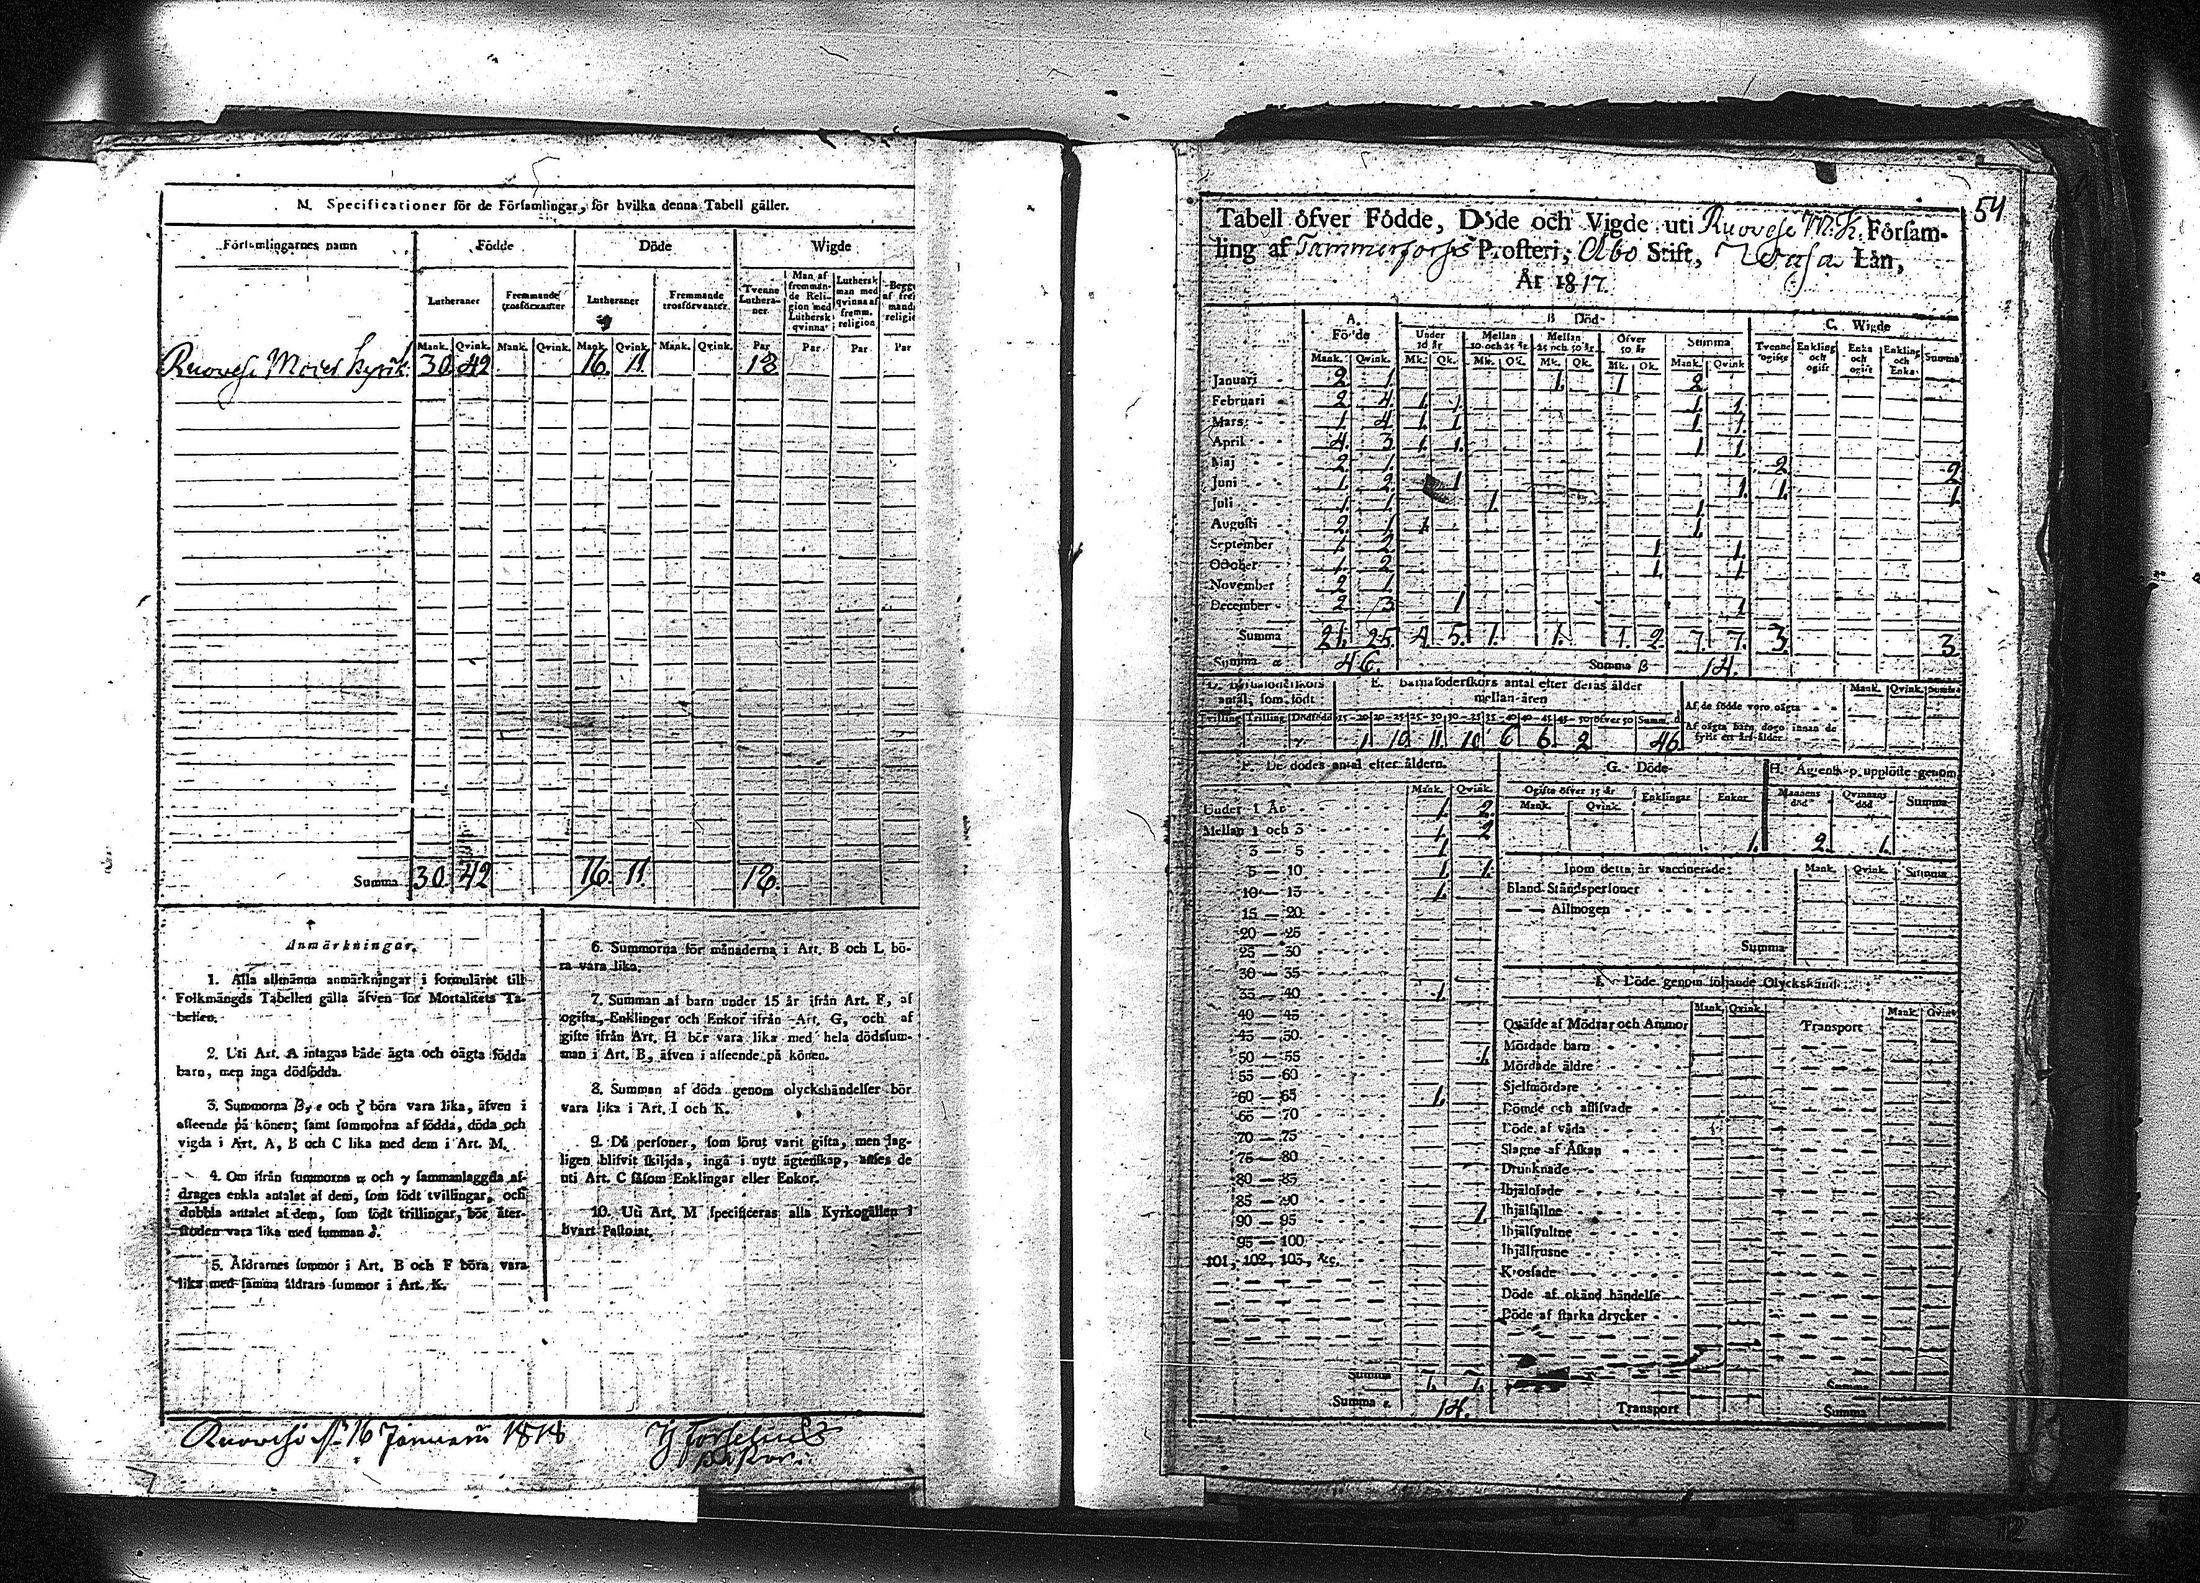 M. Specificationer för de Församlingar, för hvilka denna Tabell gäller.
Församlingarnes namn Födde Döde Wigde
Lutheraner Fremmande trosförvanter Lutheraner Fremmande trosförvanter Tvenne Lutheraner Man af fremmande Religion med Luthersk qvinna Luthersk man med qvinna af fremm. religion
Mank. Qvink. Mank. Qvink. Mank. Qvink. Mank. Qvink. Par Par Par Par
30 42 16. 11. 18
Summa 30. 42 16. 11. 18.
Anmärkningar.
1. Alla allmänna anmärkningar i formuläret till
Folkmängds Tabellen gälla äfven för Mortalitets Ta-
bellen.
2. Uti Art. A intagas både ägta och oägta födda
barn, men inga dödfödda.
3. Summorna β, ε och ζ böra vara lika, äfven i
afseende på könen; samt summorna af födda, döda och
vigda i Art. A, B och C lika med dem i Art. M.
4. Om ifrån summorna α och γ sammanlaggda af-
drages enkla antalet af dem, som födt tvillingar, och
dubbla antalet af dem, som födt trillingar, bör åter-
stoden vara lika med summan δ.
5. Åldrarnes summor i Art. B och F böra vara
lika med samma åldrars summor i Art. K.
6. Summorna för månaderna i Art. B och L bö-
ra vara lika.
7. Summan af barn under 15 år ifrån Art. F, af
ogifta, Enklingar och Enkor ifrån Art. G, och af
gifte ifrån Art. H bör vara lika med hela dödssum-
man i Art. B, äfven i afseende på könen.
8. Summan af döda genom olyckshändelser bör
vara lika i Art. I och K.
9. Då personer, som förut varit gifta, men lag-
ligen blifvit skiljda, ingå i nytt ägtenskap, anses de
uti Art. C såsom Enklingar eller Enkor.
10. Uti Art. M specificeras alla Kyrkogällen i
hvart Pastorat.
16 Januarii 1818
54
Tabell öfver Födde, Döde och Vigde uti Ruovesi M. K. Försam-
ling af Tammerforss Prosteri, Åbo Stift, Wasa Län,
År 1817.
A. Födde B Död C. Wigde
Under 10 år Mellan 10 och 25 år Mellan 25 och 50 år Öfver 50 år Summa Tvenne ogifte Enkling och ogift Enka och ogift Enkling och Enka Summa
Mank. Qvink. Mk. Qk. Mk. Qk. Mk. Qk. Mk. Qk. Mank. Qvink
Januari 2. 1. 1. 1 2
Februari 2 4. 1. 1. 1. 1.
Mars 1 4 1. 1 1 1.
April 4. 3 1. 1. 1 1.
Maj 2 1. 2. 2.
Juni 1. 2. 1 1. 1. 1.
Juli 1. 1. 1. 1.
Augusti 2. 1 1. 1.
September 1. 2. 1. 1.
October 1. 2. 1. 1.
November 2 1
December 2 3 1 1
Summa 21. 25. 4. 5. 1. 1. 1. 2. 7. 7. 3. 3.
Summa α 46. Summa β 14.
antal, som födt E. Barnaföderskors antal efter deras ålder mellan åren Mank. Qvink. Summa
Af de födde voro oägta
Af oägta barn dogo innan de fyllt ett års ålder
15-20 20-25 25-30 30-35 35-40 40-45 45-50 öfver 50 Summ. δ
1. 10. 11. 10. 6 6. 2 46.
F. De dödes antal efter åldern. G. Döde H. Ägtensk-p upplöste genom
Mank. Qvink. Ogifte öfver 15 år Enklingar Enkor Mannens död Qvinnans död Summa
Mank. Qvink.
1. 2. 1.
Under 1 År 1. 2.
Mellan 1 och 3 1. 2
3 — 5 1
5 — 10 1. 1.
10 — 15 1.
15 — 20
20 — 25
25 — 30
30 — 35
35 — 40 1
40 — 45
45 — 50
50 — 55 1.
55 — 60
60 — 65 1.
65 — 70
70 — 75
75 — 80
80 — 85
85 — 90
90 — 95 1.
95 — 100
101, 102, 103, &c.
Summa 7. 7.
Summa ε. 14.
Inom detta år vaccinerade: Mank. Qvink. Summa
bland Ståndspersoner
— — Allmogen
Summa
I. Döde genom följande Olyckshänd.
Mank. Qvink. Mank. Qvink
Qväfde af Mödrar och Ammor Transport
Mördade barn
Mördade äldre
Sjelfmördare
Dömde och aflifvade
Döde af våda
Slagne af Åskan
Drunknade
Ihjälfallne
Ihjälfrusne
Krossade
Döde af okänd händelse
Döde af starka drycker
Summa
Transport Summa